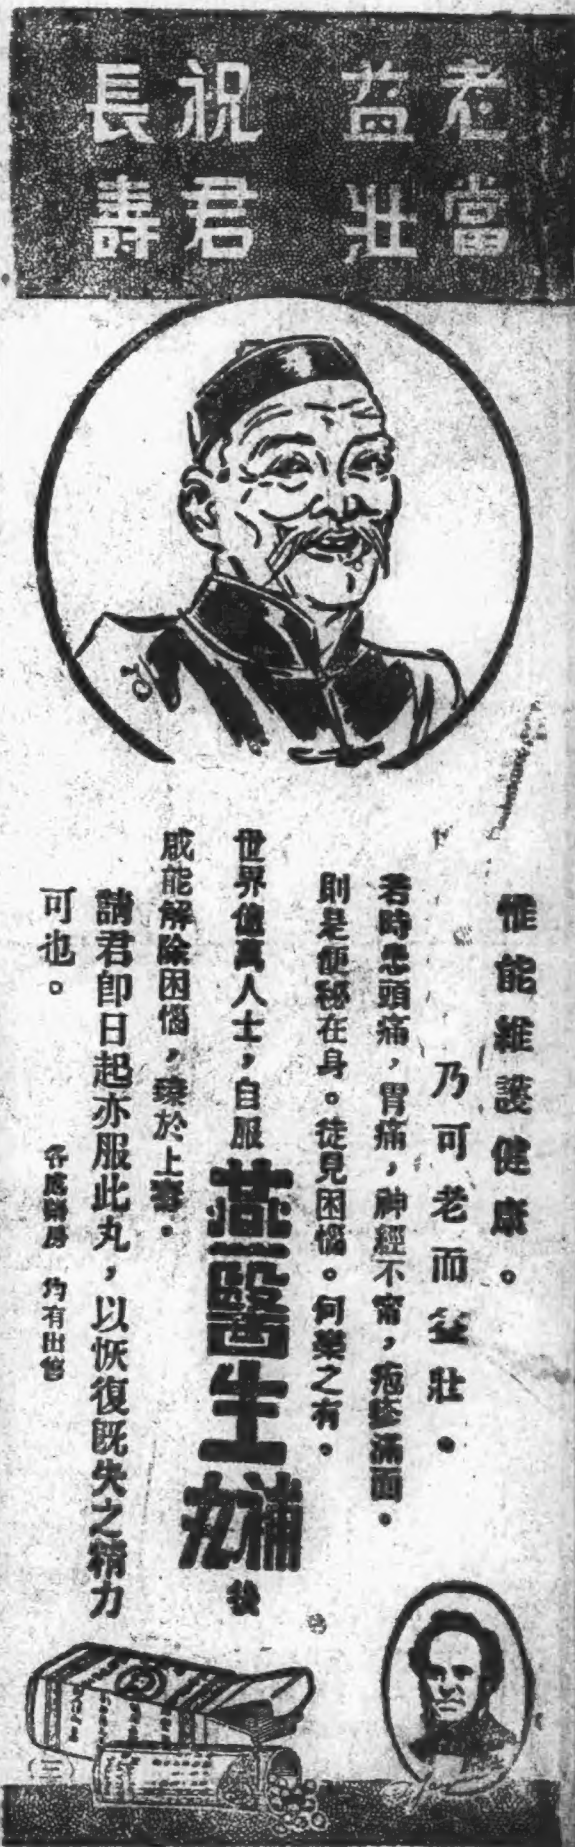 老當
益壯
祝君
長壽
惟能維護健康。
乃可老而益壯。
若時患頭痛，胃痛，神經不甯，疱疹滿面。
則是便秘在身。徒見困惱。何樂之有。
世界億萬人士，自服燕醫生補丸後
咸能解除困惱，臻於上壽。
請君卽日起亦服此丸，以恢復旣失之精力
可也。
各藥房 均有出售
(三)